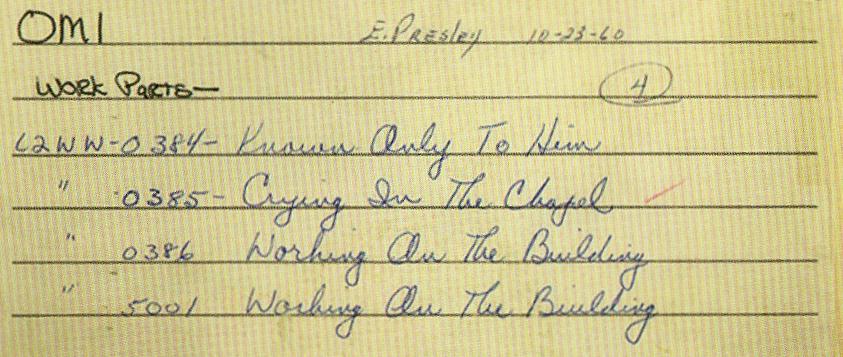 OMI E. PRESLEY 10-23-60
WORK PARTS— 4
L2WW-0384- Known Only To Him
" 0385- Crying In The Chapel
" 0386 Working On The Building
" 5001 Working On The Building